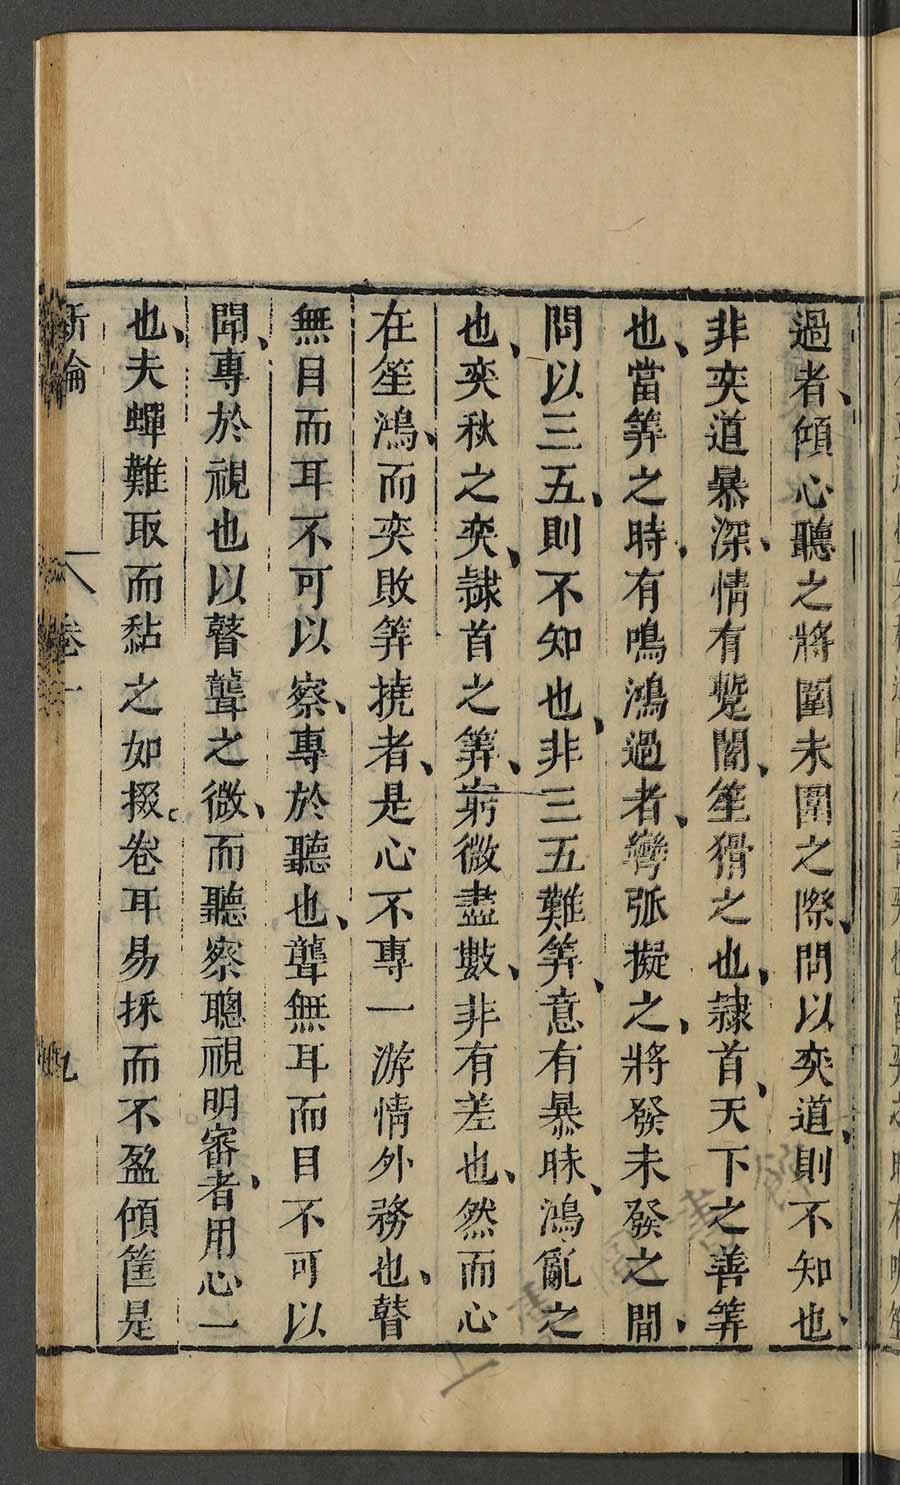 過者、傾心聽之將圍未圍之際、問以奕道、則不知也、
非奕道暴深、情有蹔闇、笙猾之也、隸首、天下之善筭
也、當筭之時、有鳴鴻過者、彎弧擬之、將發未發之間、
問以三五、則不知也、非三五難筭、意有暴昧、鴻亂之
也、奕秋之奕、隸首之筭、窮微盡數、非有差也、然而心
在笙鴻、而奕敗筭撓者、是心不專一游情外務也、瞽
無目而耳不可以察、專於聽也、聾無耳而目不可以
聞、專於視也以瞽聾之微、而聽察聰視明審者、用心一
也、夫蟬難取而黏之如掇。卷耳易採而不盈傾筐是
新論 卷一 九